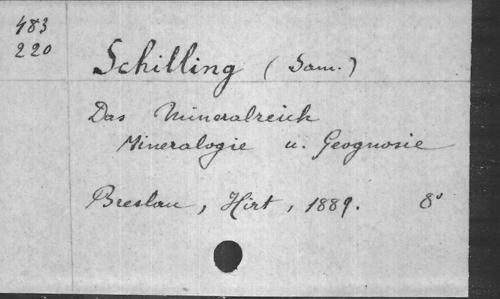 483
220
Schilling (Sam.)
Das Mineralreich
Mineralogie u. Geognosie
Breslau, Hirt, 1889. 8°